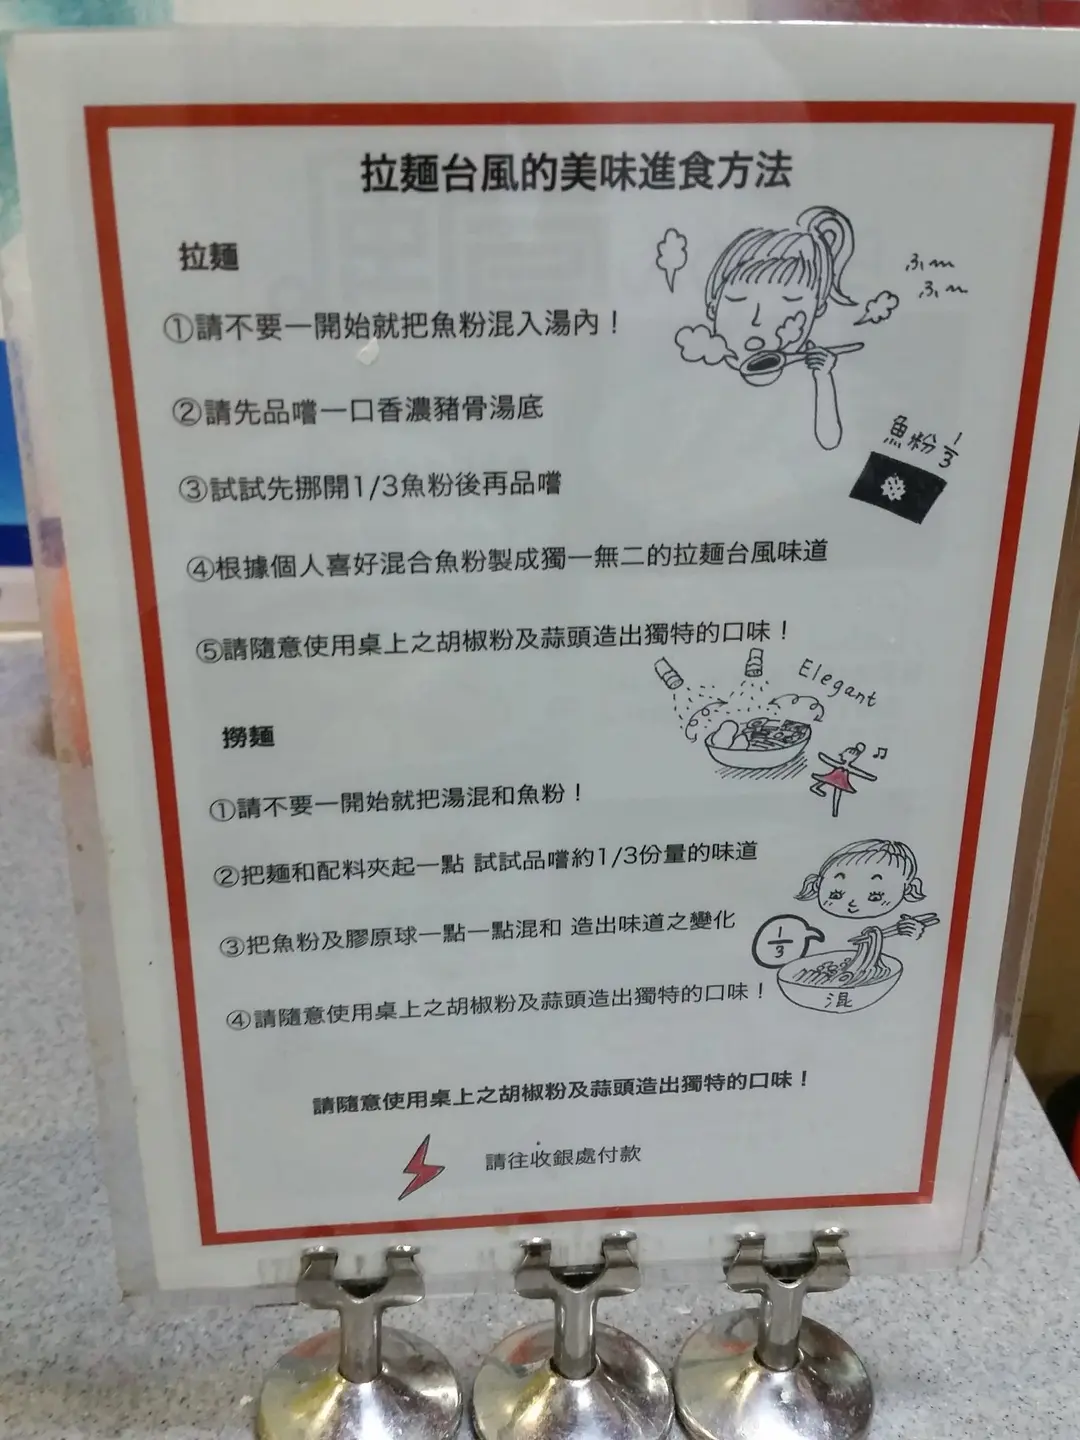 拉麵台風的美味進食方法
拉麵
①請不要一開始就把魚粉混入湯內！
②請先品嚐一口香濃豬骨湯底
③試試先挪開1/3魚粉後再品嚐
④根據個人喜好混合魚粉製成獨一無二的拉麵台風味道
⑤請隨意使用桌上之胡椒粉及蒜頭造出獨特的口味！
ふー
ふー
魚粉 1/3
Elegant
撈麵
①請不要一開始就把湯混和魚粉！
②把麵和配料夾起一點 試試品嚐約1/3份量的味道
③把魚粉及膠原球一點一點混和 造出味道之變化
④請隨意使用桌上之胡椒粉及蒜頭造出獨特的口味！
1/3
混
請隨意使用桌上之胡椒粉及蒜頭造出獨特的口味！
請往收銀處付款